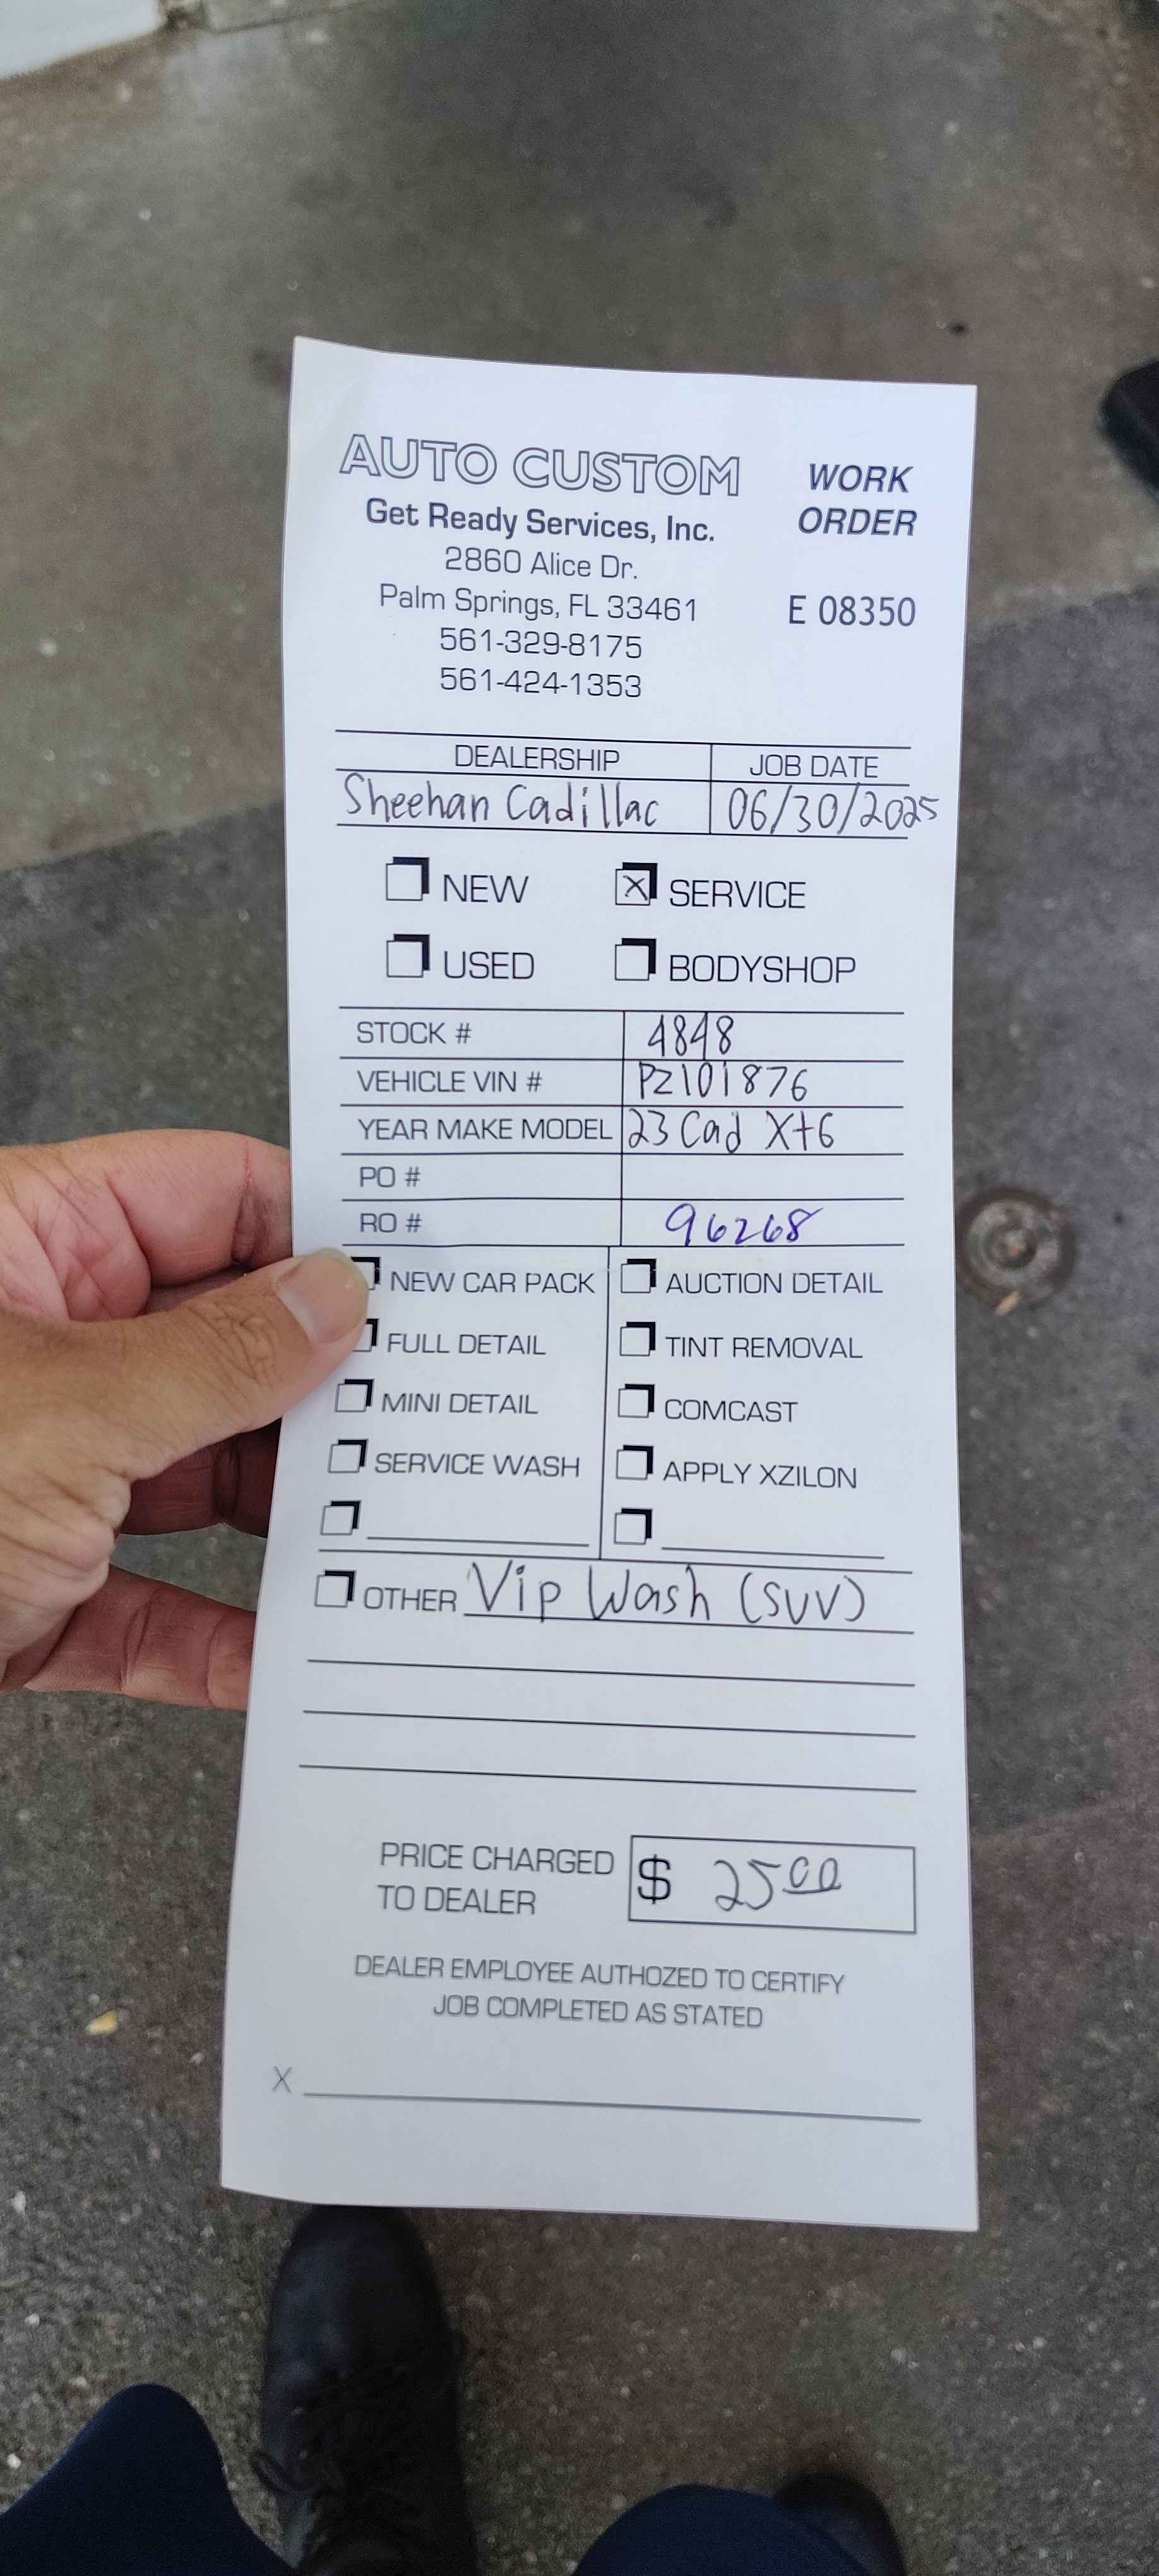 AUTO CUSTOM
Get Ready Services, Inc.
2860 Alice Dr.
Palm Springs, FL 33461
561-329-8175
561-424-1353
WORK
ORDER
E 08350
DEALERSHIP JOB DATE
Sheehan Cadillac 06/30/2025
NEW X SERVICE
USED BODYSHOP
STOCK # 4848
VEHICLE VIN # PZ101876
YEAR MAKE MODEL 23 Cad Xt6
PO #
RO # 96268
NEW CAR PACK AUCTION DETAIL
FULL DETAIL TINT REMOVAL
MINI DETAIL COMCAST
SERVICE WASH APPLY XZILON
OTHER Vip Wash (SUV)
PRICE CHARGED
TO DEALER $ 25 00
DEALER EMPLOYEE AUTHOZED TO CERTIFY
JOB COMPLETED AS STATED
X